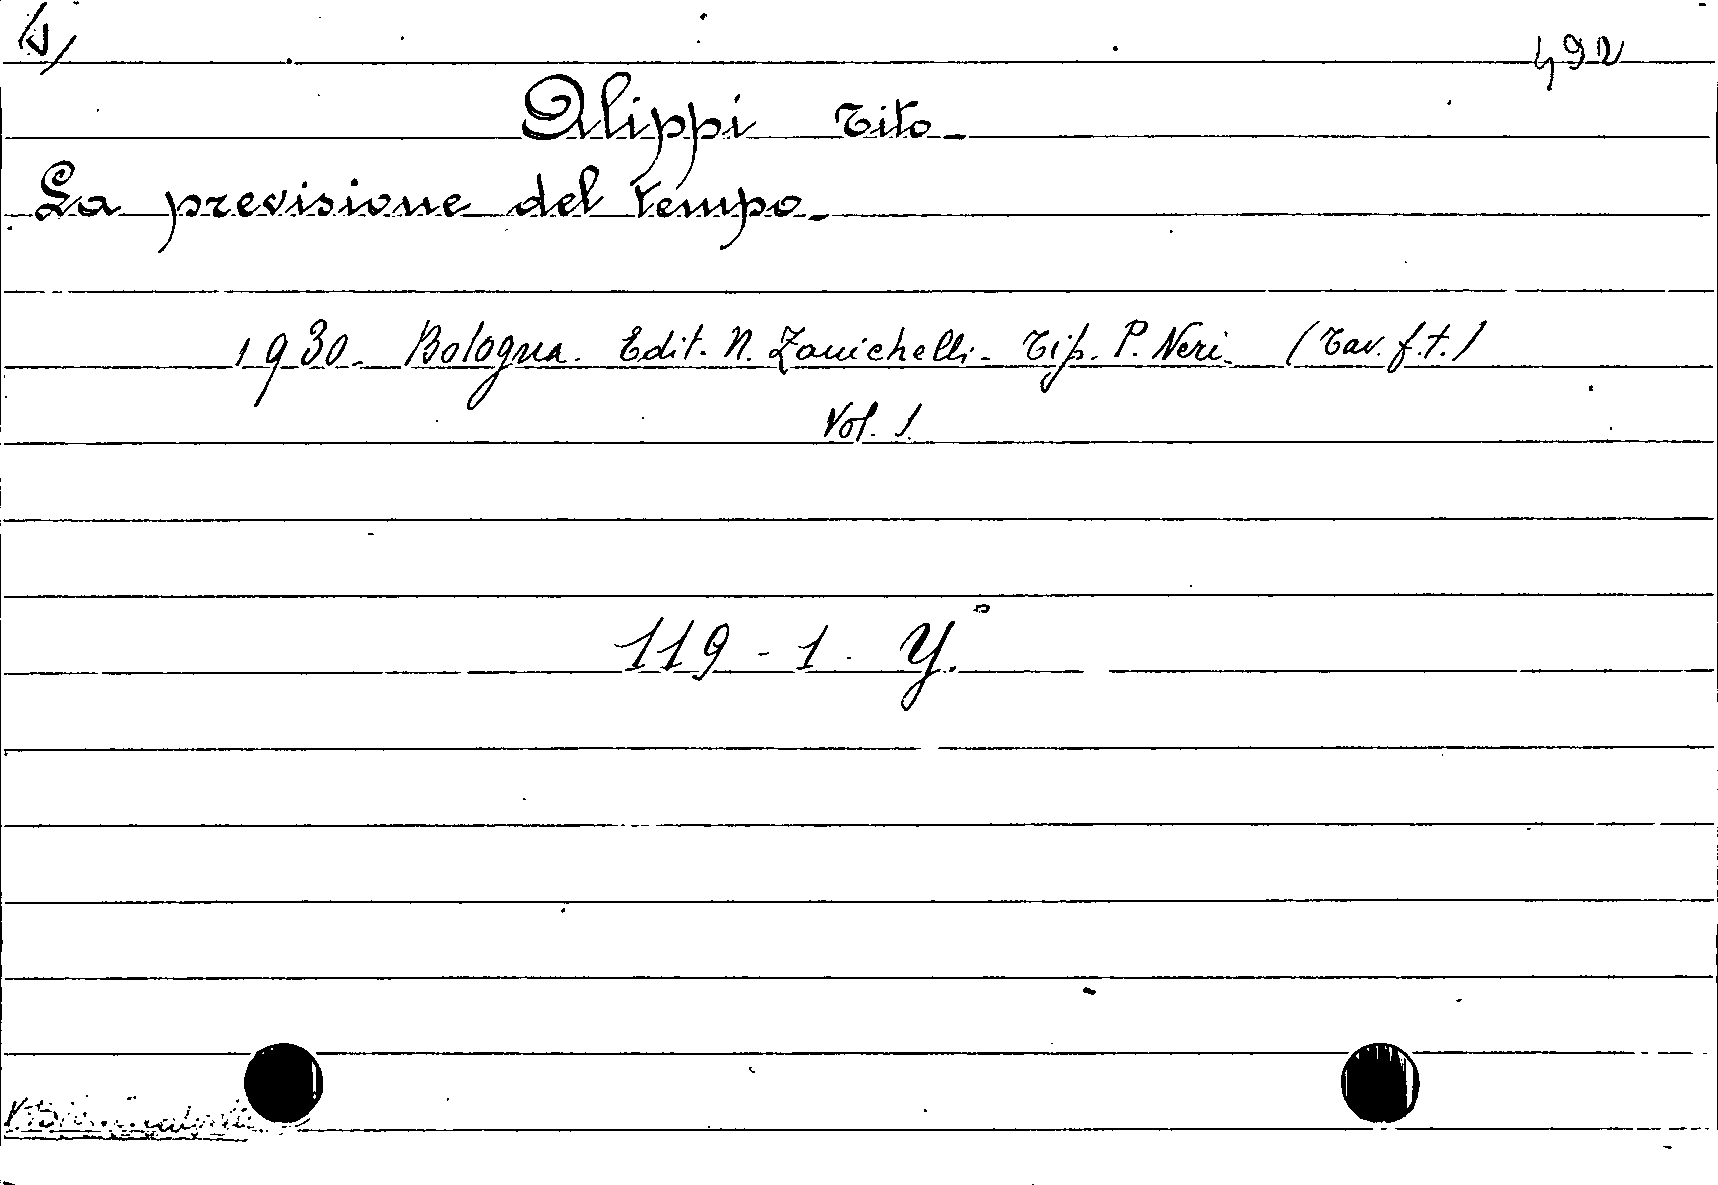 492
Alippi Tito -
La previsione del tempo -
1930 - Bologna. Edit. N. Zanichelli - Tip. P. Neri - (Tav. f. t.)
Vol. 1.
119 - 1. Y.°